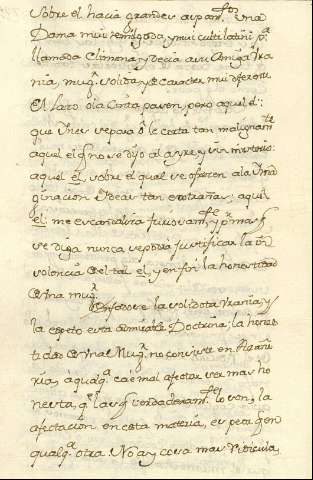 sobre el hacia grandes aspam.tos Una
Dama mui remilgada, y mui culti latini p.a
llamada Climena; y decia a su Amiga Ura
nia, mug.r solida, y de caracter mui diferente
El lazo, ola Cinta pasen, pero aquel el:
que Uñes repara q.e le corta tan malignam.te
aquel el q.e no se dijo al ayre, y sin misterio:
aquel el sobre el qual se ofrecen ala Yma
ginacion Ydeas tan extrañas; aquel
el: me escandaliza furiosam.te, y p.r mas q.e
se diga nunca se podra justificar la in
solencia del tal el, y en fin la honestidad
de Una mug.r
Enfadose la solidota Urania, y
la espeto esta admirable Doctrina; la hones
tidad de Una Mug.r no consiste en Hazañe
rias, à qualq.a cae mal afectar ser mas ho
nesta, q.e las q.e verdaderam.te lo son; la
afectacion en esta materia, es peor q.e en
qualq.a otra. No ay cosa mas ridicula,